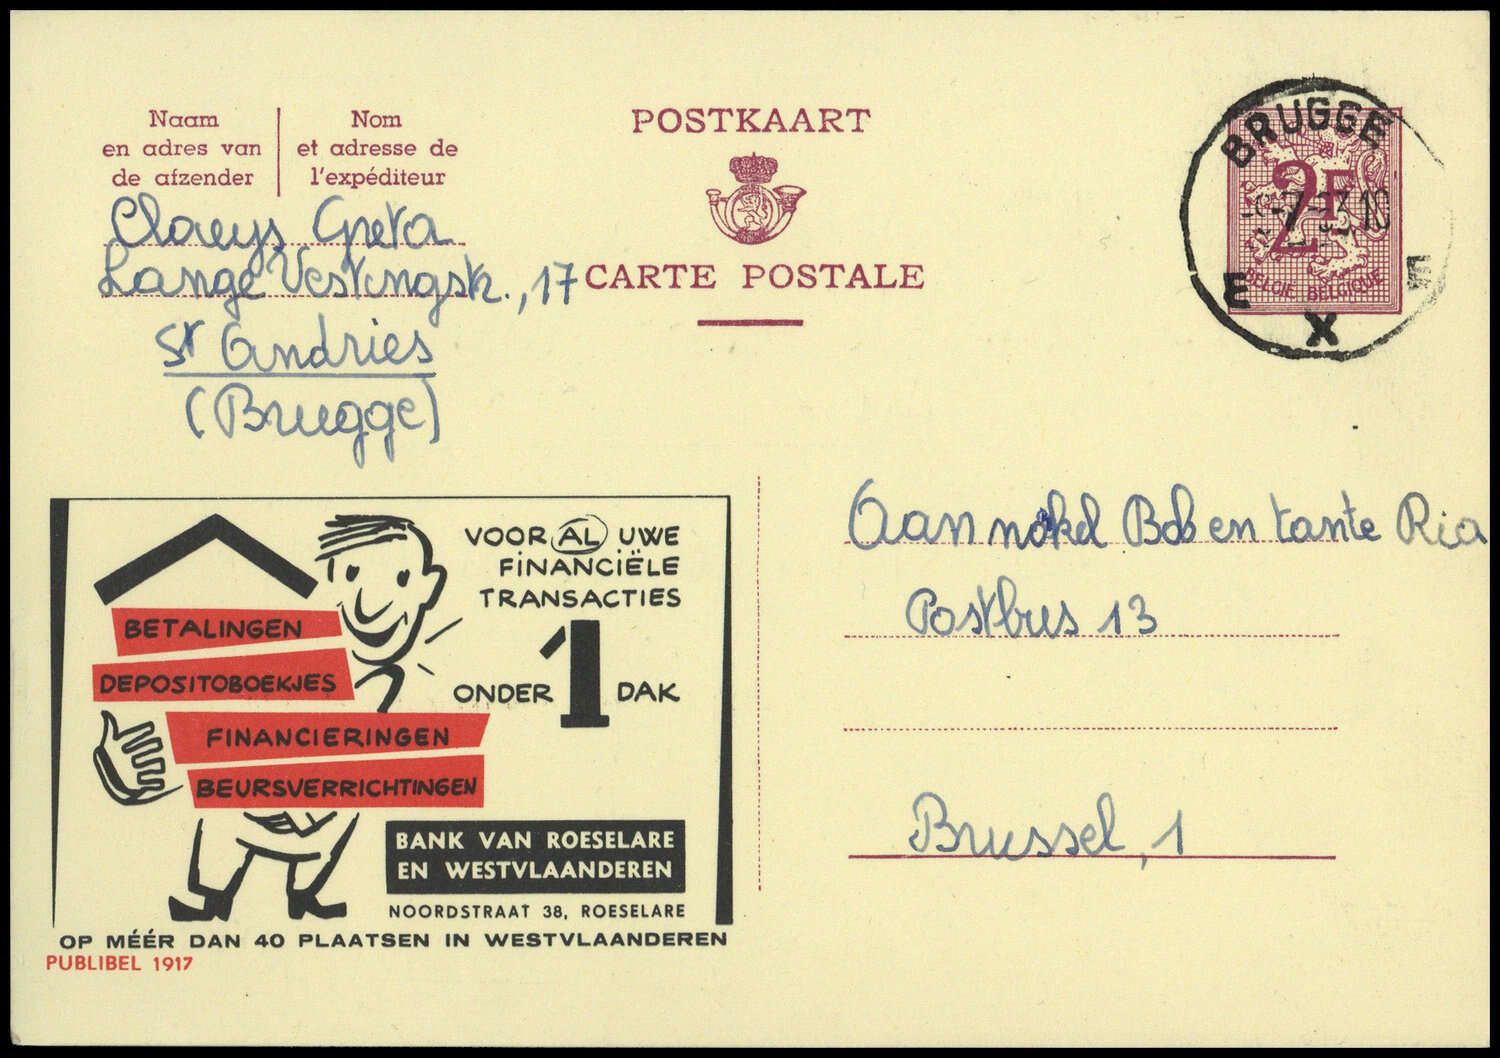 Naam
en adres van
de afzender
Nom
et adresse de
l'expéditeur
POSTKAART
CARTE POSTALE
Claeys Greta
Lange Vestingstr., 17
St Andries
(Brugge)
BRUGGE
E X E
2F
BELGIE BELGIQUE
VOOR AL UWE
FINANCIËLE
TRANSACTIES
ONDER 1 DAK
BETALINGEN
DEPOSITOBOEKJES
FINANCIERINGEN
BEURSVERRICHTINGEN
BANK VAN ROESELARE
EN WESTVLAANDEREN
NOORDSTRAAT 38, ROESELARE
OP MÉÉR DAN 40 PLAATSEN IN WESTVLAANDEREN
PUBLIBEL 1917
Aan nokel Bob en tante Ria
Postbus 13
Brussel, 1